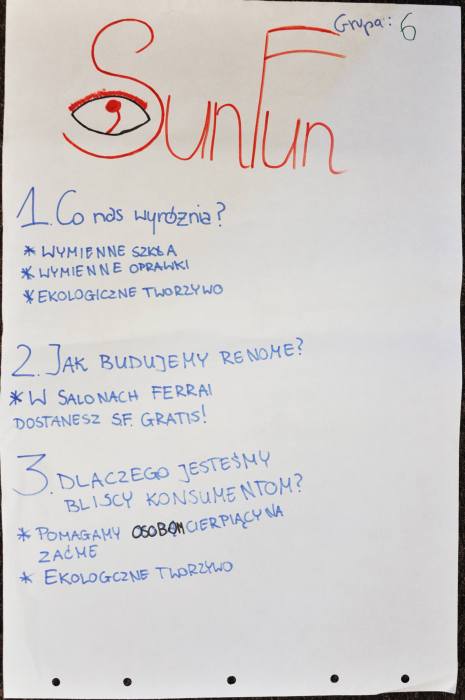 Grupa: 6
SunFun
1. Co nas wyróżnia?
* WYMIENNE SZKŁA
* WYMIENNE OPRAWKI
* EKOLOGICZNE TWORZYWO
2. JAK BUDUJEMY RENOME?
* W SALONACH FERRAI
DOSTANESZ S.F. GRATIS!
3. DLACZEGO JESTEŚMY
BLISCY KONSUMENTOM?
* POMAGAMY OSOBOM CIERPIĄCY NA
ZAĆME
* EKOLOGCZNE TWORZYWO